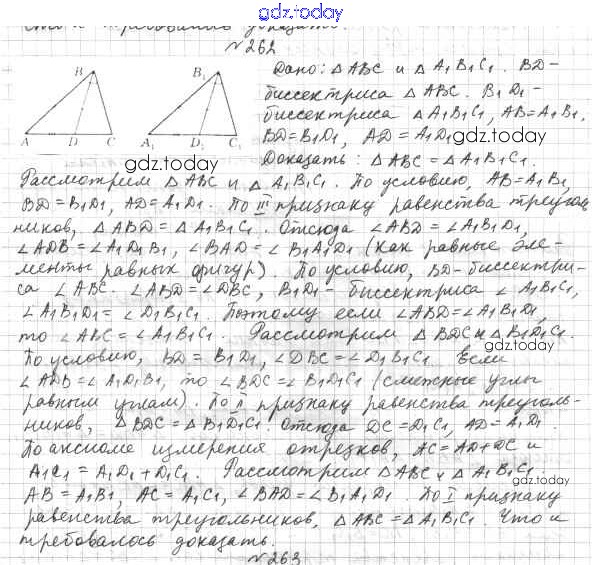 gdz.today
№262
B
B₁
A D C A₁ D₂ C₁
gdz.today
Дано: △ABC и △A₁B₁C₁. BD-
биссектриса △ABC. B₁D₁-
биссектриса △A₁B₁C₁, AB=A₁B₁,
BD=B₁D₁, AD=A₁D₁
gdz.today
Доказать: △ABC=△A₁B₁C₁.
Рассмотрим △ABC и △A₁B₁C₁. По условию, AB=A₁B₁,
gdz.today
BD=B₁D₁, AD=A₁D₁. По III признаку равенства треуголь-
ников, △ABD=△A₁B₁C₁. Отсюда ∠ABD=∠A₁B₁D₁,
∠ADB=∠A₁D₁B₁, ∠BAD=∠B₁A₁D₁ (как равные эле-
gdz.today
менты равных фигур). По условию, BD-биссектри-
са ∠ABC. ∠ABD=∠DBC, B₁D₁- биссектриса ∠A₁B₁C₁,
∠A₁B₁D₁=∠D₁B₁C₁. Поэтому если ∠ABD=∠A₁B₁D₁,
то ∠ABC=∠A₁B₁C₁. Рассмотрим △BDC и △B₁D₁C₁.
gdz.today
По условию, BD=B₁D₁, ∠DBC=∠D₁B₁C₁. Если
∠ADB=∠A₁D₁B₁, то ∠BDC=∠B₁D₁C₁ (смежные углы
gdz.today
равным углам). По II признаку равенства треуголь-
ников, △BDC=△B₁D₁C₁. Отсюда DC=D₁C₁, AD=A₁D₁.
gdz.today
По аксиоме измерения отрезков, AC=AD+DC и
A₁C₁=A₁D₁+D₁C₁. Рассмотрим △ABC и △A₁B₁C₁.
gdz.today
AB=A₁B₁, AC=A₁C₁, ∠BAD=∠B₁A₁D₁. По I признаку
равенства треугольников, △ABC=△A₁B₁C₁. Что и
требовалось доказать.
gdz.today
№263